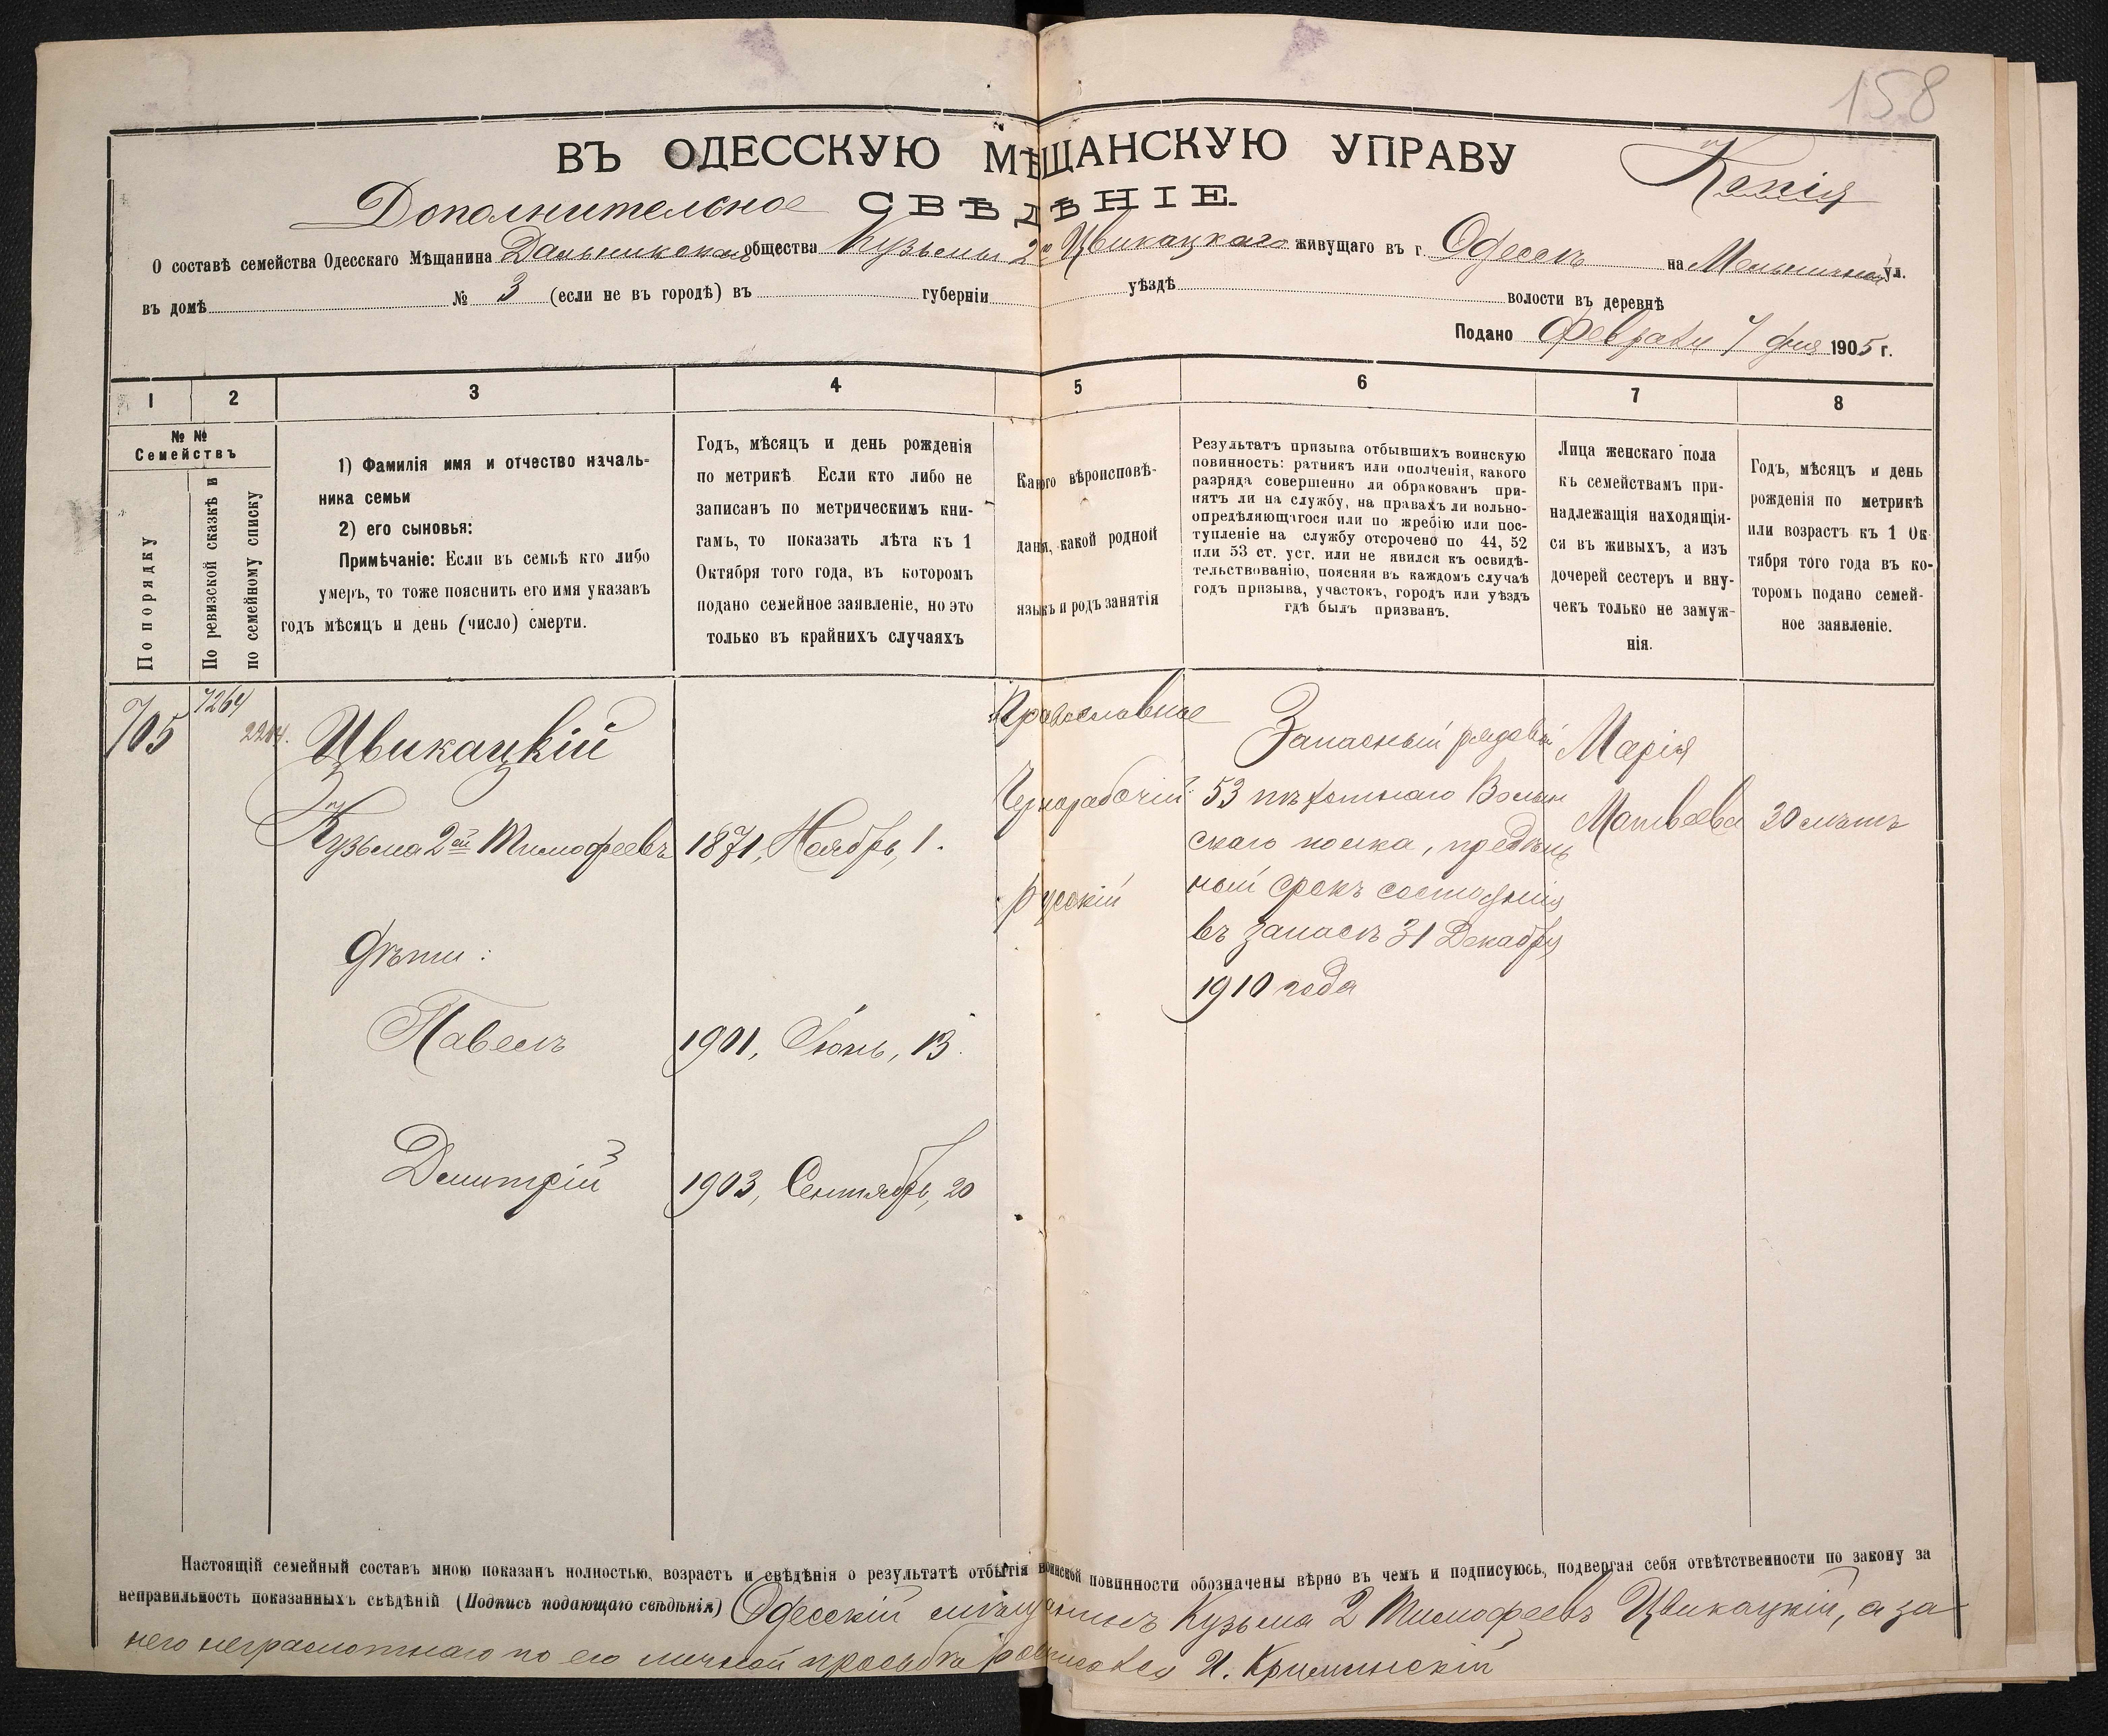 158
ВЪ ОДЕССКУЮ МѢЩАНСКУЮ УПРАВУ
Копія
Дополнительное СВѢДѢНІЕ.
О составѣ семейства Одесскаго Мѣщанина Дальникскаго общества Кузьмы 2го Цвикацкаго живущаго въ г. Одессѣ на Мельничной ул.
въ домѣ № 3 (если не въ городѣ) въ губерніи уѣздѣ волости въ деревнѣ
Подано Февраля 7 дня 1905 г.
1 2 3 4 5 6 7 8
№ №
Семействъ
По порядку
По ревизской сказкѣ и
по семейному списку
1) Фамилія имя и отчество началь-
ника семьи
2) его сыновья:
Примѣчаніе: Если въ семьѣ кто либо
умеръ, то тоже пояснить его имя указавъ
годъ мѣсяцъ и день (число) смерти.
Годъ, мѣсяцъ и день рожденія
по метрикѣ. Если кто либо не
записанъ по метрическимъ кни-
гамъ, то показать лѣта къ 1
Октября того года, въ которомъ
подано семейное заявленіе, но это
только въ крайнихъ случаяхъ
Какого вѣроисповѣ-
данія, какой родной
языкъ и родъ занятія
Результатъ призыва отбывшихъ воинскую
повинность: ратникъ или ополченія, какого
разряда совершенно ли обракованъ при-
нятъ ли на службу, на правахъ ли вольно-
опредѣляющагося или по жребію или пос-
тупленіе на службу отсрочено по 44, 52
или 53 ст. уст. или не явился къ освидѣ-
тельствованію, поясняя въ каждомъ случаѣ
годъ призыва, участокъ, городъ или уѣздъ
гдѣ былъ призванъ.
Лица женскаго пола
къ семействамъ при-
надлежащія находящія-
ся въ живыхъ, а изъ
дочерей сестеръ и вну-
чекъ только не замуж-
нія.
Годъ, мѣсяцъ и день
рожденія по метрикѣ
или возрастъ къ 1 Ок
тября того года въ ко-
торомъ подано семей-
ное заявленіе.
705
7264
2204.
Цвикацкій
Кузьма 2ой Тимофеевъ
1871, Ноябрь, 1.
Православное
Чернорабочій
русскій
Запасный рядовой
53 пѣхотнаго Волын
скаго полка, предѣль
ный срокъ состоянія
въ запасѣ 31 Декабря
1910 года
Марія
Матвѣева
30 лѣтъ
Дѣти:
Павелъ
1901, Іюнь, 13.
Димитрій
1903, Сентябрь, 20
Настоящій семейный составъ мною показанъ полностью, возрастъ и свѣдѣнія о результатѣ отбытія воинской повинности обозначены вѣрно въ чемъ и подписуюсь, подвергая себя отвѣтственности по закону за
неправильность показанныхъ свѣдѣній (Подпись подающаго свѣдѣнія) Одесскій мѣщанинъ Кузьма 2 Тимофеевъ Цвикацкій, а за
него неграмотнаго по его личной просьбѣ росписался И. Криминскій